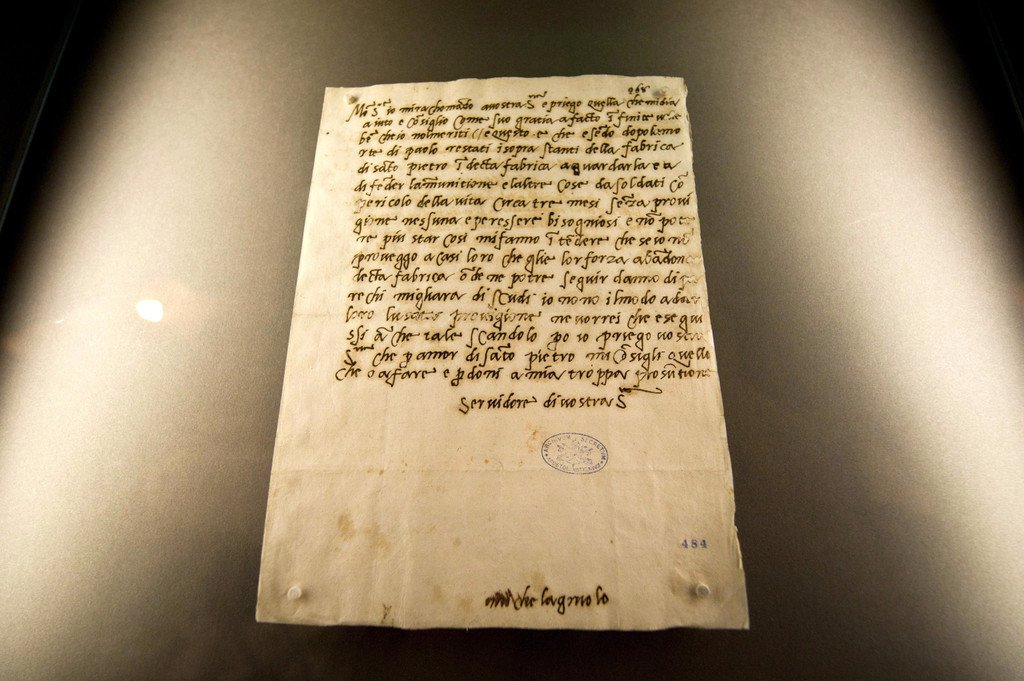 968
Mo S.re io mi rachomādo a vostra S. e priego quella che mi dia
aiuto e cōsiglio come suo gratia a facto ī finite
bē che io nol meriti e questo e che esēdo dopo la mo
rte di paolo restati i sopra stanti della fabrica
di sāto pietro ī decta fabrica a guardarla e a
difēder la munitione e laltre cose da soldati cō
pericolo della vita circa tre mesi sēza provi
gione nessuna e per essere bisogniosi e nō pote
re piu star cosi mi fanno ītēdere che se io nō
proveggo a casi loro che gli e lor forza abādon
decta fabrica ōde ne potre seguir danno di pa
rechi migliara di scudi io no no il modo a dar
loro provigione ne vorrei che e segui
ssi āche tale scandolo po io priego vostra
S. che p amor di sāto pietro mi cōsigli quello
che o a fare e p doni a mia troppa prosūtione
servidore di vostra S.
ARCHIVUM SECRETUM
APOSTOL. VATICANUM
484
michelagniolo